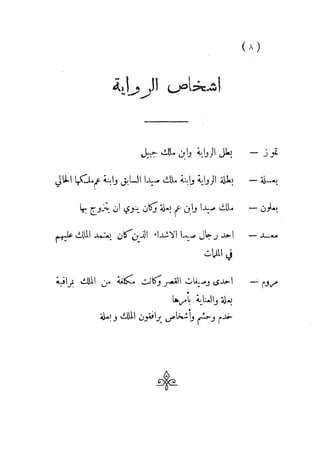 (٨)
اشخاص الرواية
تموز — بطل الرواية وابن ملك جبيل
بعسلة — بطلة الرواية وابنة ملك صيدا السابق وابنة عم ملكها الحالي
بعلون — ملك صيدا وابن عم بعلة وكان ينوي ان يتزوج بها
معسد — احد رجال صيدا الاشداء الذين كان يعتمد الملك عليهم
في الملمات
مروم — احدى وصيفات القصر وكانت مكلفة من الملك بمراقبة
بعلة والعناية بأمرها
خدم وحشم وأشخاص يرافقون الملك وبعلة